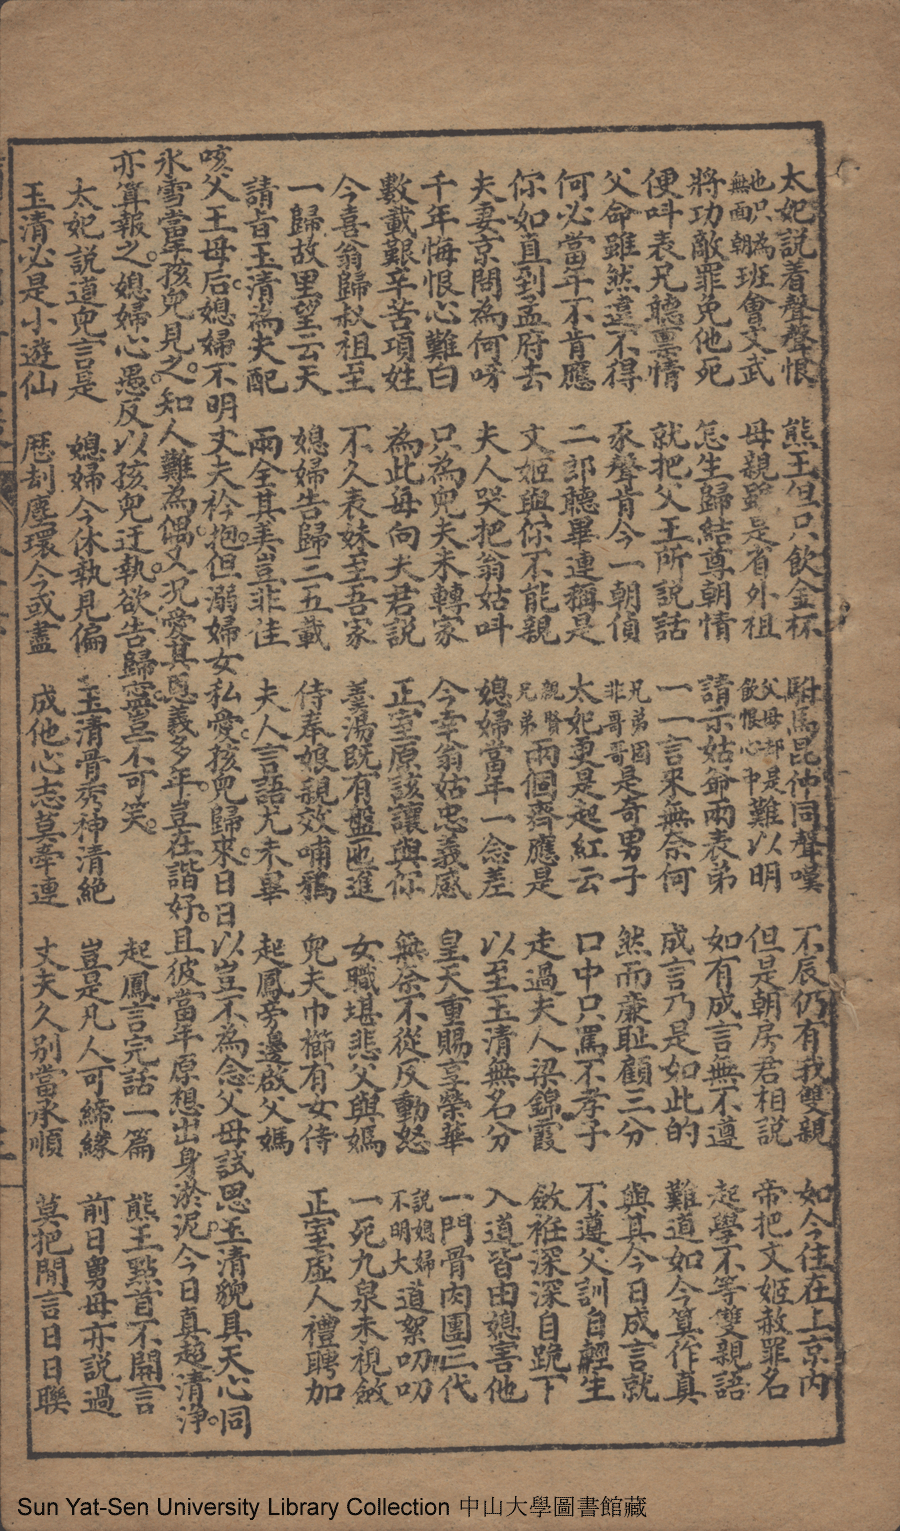 太妃說着聲聲恨 熊王但只飲金杯 駙馬昆仲同聲嘆 不辰仍有我雙親 如今住在上京内
也只為無面朝班會文武 母親雖是省外祖 父母都是飲恨心中難以明 但是朝房君相說 帝把文姬赦罪名
將功敵罪免他死 怎生歸結尊朝情 請示姑爺兩表弟 如有成言無不遵 起學不等雙親語
便呌表兄聽禀情 就把父王所說話 一一言來無奈何 成言乃是如此的 難道如今算作真
父命雖然違不得 豕聲肯今一朝偵 兄弟因非哥哥是奇男子 然而廉耻顧三分 與其今日成言就
何必當年不肯應 二郎聽畢連稱是 太妃更是起紅云 口中只罵不孝子 不遵父訓自輕生
你如直到孟府去 文姬與你不能親 親賢兄弟兩個齊應是 走過夫人梁錦霞 斂袵深深自跪下
夫妻京問為何呀 夫人哭把翁姑呌 媳婦當年一念差 以至玉清無名分 入道皆由媳害他
千年悔恨心難白 只為兒夫未轉家 今幸翁姑忠義感 皇天重賜享榮華 一門骨肉團三代
數載艱辛苦項姓 為此每向夫君說 正室原該讓與你 無奈不從反動怒 說媳婦不明大道絮叨叨
今喜翁歸叔祖至 不久表妹至吾家 羹湯既有盤匜進 女職堪悲父與媽 一死九泉未視斂
一歸故里望云天 媳婦告歸三五載 侍奉娘親效哺鴉 兒夫巾櫛有女侍 正室虛人禮聘加
請旨玉清為夫配 兩全其美豈非佳 夫人言語尤未畢 起鳳旁邊啟父媽
咳父王母后。媳婦不明丈夫衿抱。但溺婦女私愛。孩兒歸來。日日以豈不為念父母。試思玉清貌具天心同
氷雪。當年孩兒見之。知人難為偶。又況愛其恩義多年。豈在諧好。且彼當年原想出身淤泥。今日真超清淨。
亦算報之。媳婦心愚。反以孩兒迂執。欲告歸寧。豈不可笑。 起鳳言完話一篇 熊王點首不開言
太妃說道兒言是 媳婦今休執見偏 玉清骨秀神清絶 豈是凡人可締緣 前日舅母亦說過
玉清必是小遊仙 歴刦塵環今或盡 成他心志莫牽連 丈夫久别當承順 莫把閒言日日聯
Sun Yat-Sen University Library Collection 中山大學圖書館藏